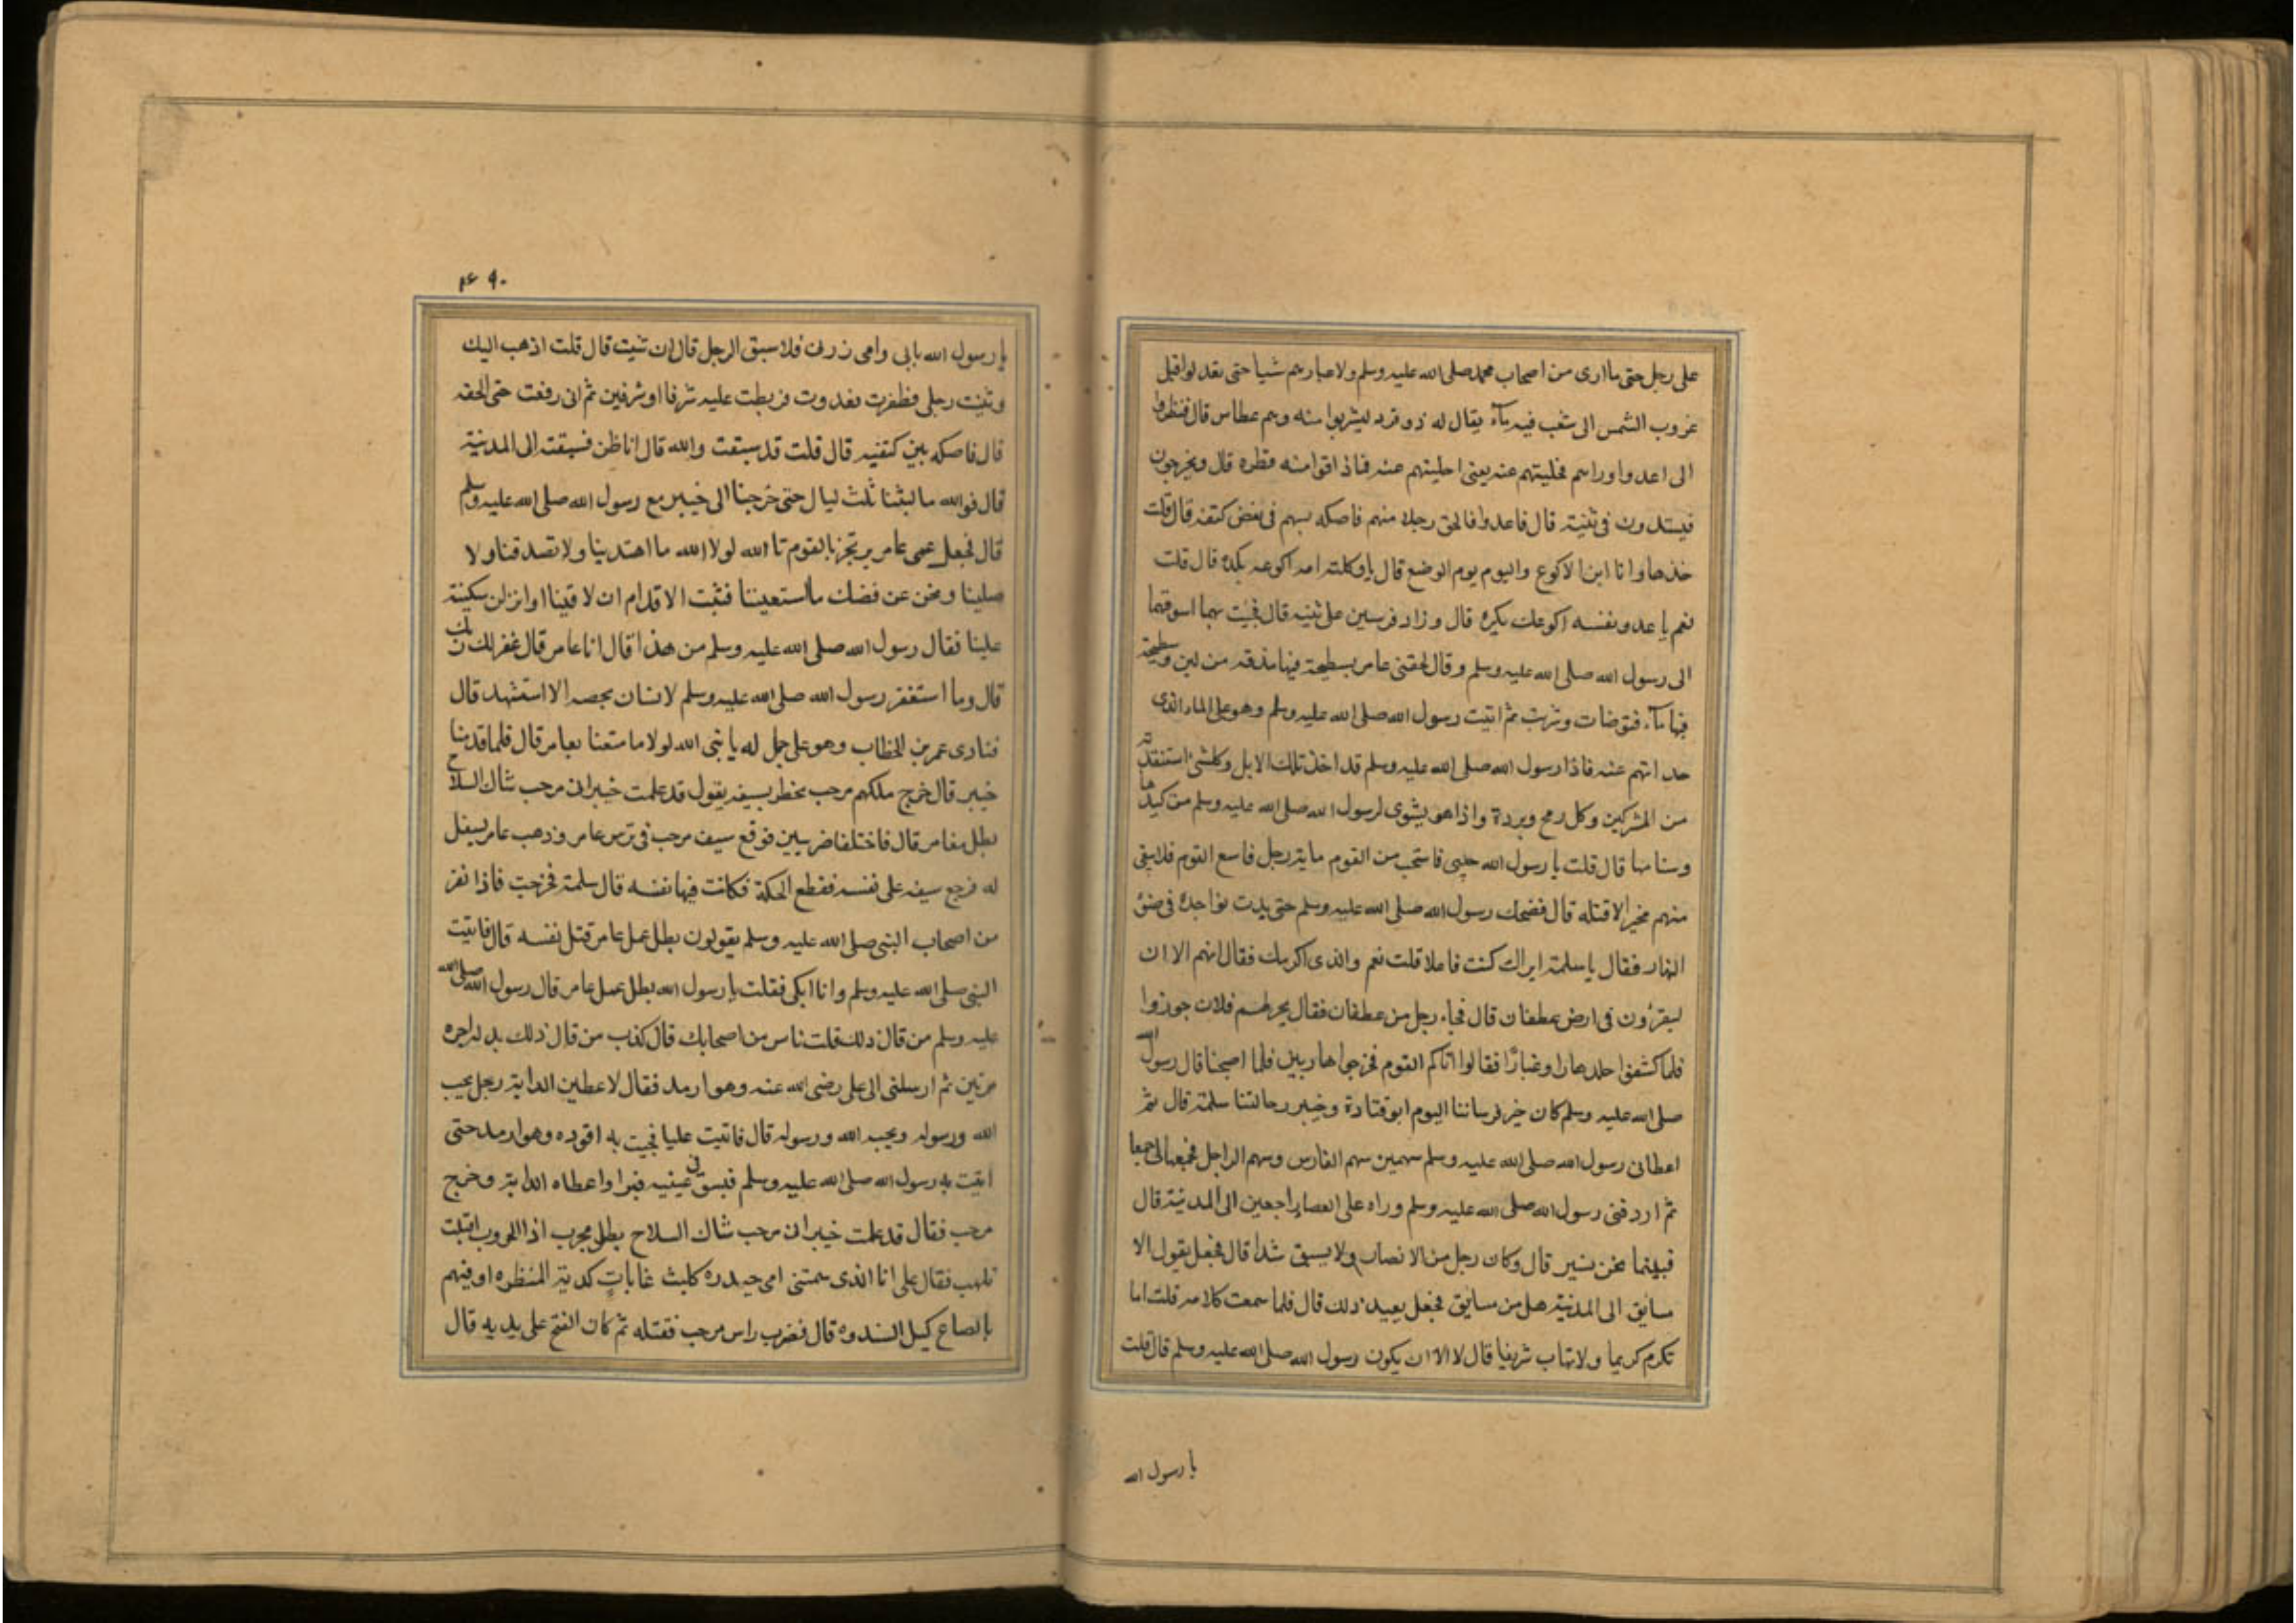 على رجل حتى ما ارى من اصحاب محمد صلى الله عليه وسلم ولا غبارهم شيا حتى يعدلوا قبل
غروب الشمس الى شعب فيه مآء يقال له ذو قرد ليشربوا منه وهم عطاس قال فنظروا
الى اعدوا وراهم فخليتهم عنه يعنى احليتهم عنه فماذ اقوا منه قطره قال ويخرجون
فيستدون فى ثنية قال فاعدوا فالحق رجلا منهم فاصكه بسهم فى نغض كتفه قال قلت
خذها وانا ابن الاكوع واليوم يوم الوضع قال يا وكلته امه اكوعه بكره قال قلت
نعم يا عدو نفسه اكوعك بكره قال و زاد فرسين على ثنيه قال فجيت بهما اسوقهما
الى رسول الله صلى الله عليه وسلم و قال لحقنى عامر بسطيحة فيها مذقه من لبن وسطيحة
فيها مآء فتوضات وشربت ثم اتيت رسول الله صلى الله عليه وسلم وهو على الماء الذى
حد اتهم عنه فاذا رسول الله صلى الله عليه وسلم قد اخذ تلك الابل وكلشئ استنقذته
من المشركين وكل رمح وبردة واذا هو يشوى لرسول الله صلى الله عليه وسلم من كبدها
وسنامها قال قلت يا رسول الله خلينى فانتخب من القوم ماية رجل فاتبع القوم فلا يبقى
منهم مخبر الا قتلته قال فضحك رسول الله صلى الله عليه وسلم حتى بدت نواجده فى ضوء
النهار فقال يا سلمة اتراك كنت فاعلا قلت نعم والذى اكرمك فقال انهم الا ان
ليقرؤن فى ارض عطفان قال فجاء رجل من عطفان فقال نحر لهم فلان جوزوا
فلما كشفوا جلدها راو غبارًا فقالوا اتاكم القوم فخرجوا هاربين فلما اصبحنا قال رسول الله
صلى الله عليه وسلم كان خير فرساننا اليوم ابو قتادة وخيبر رجالتنا سلمة قال ثم
اعطانى رسول الله صلى الله عليه وسلم سهمين سهم الفارس وسهم الراجل فجمعهما لى جمعا
ثم اردفنى رسول الله صلى الله عليه وسلم وراه على العصا راجعين الى المدينة قال
فبينما نحن نسير قال وكان رجل من الانصار ولا يسبق شدا قال فجعل يقول الا
مسابق الى المدينة هل من مسابق فجعل يعيد ذلك قال فلما سمعت كلامه قلت اما
تكرم كريما ولا تهاب شريفا قال لا الا ان يكون رسول الله صلى الله عليه وسلم قال قلت
يا رسول الله
۴۶۹۰
يا رسول الله بابى وامى ذرنى فلا سبق الرجل قال ان شيت قال قلت اذهب اليك
وثنيت رجلى فطفرت فعدوت فربطت عليه شرفا او شرفين ثم انى رفعت حتى الحقه
قال فاصكه بين كتفيه قال قلت قد سبقت والله قال انا اظن فسبقته الى المدينة
قال فوالله ما لبثنا ثلث ليال حتى خرجنا الى خيبر مع رسول الله صلى الله عليه وسلم
قال فجعل عمى عامر يرتجز بالقوم تا الله لولا الله ما اهتدينا ولا تصدقنا ولا
صلينا ونحن عن فضلك ما استعيننا فثبت الاقدام ان لاقينا او انزلن سكينة
علينا فقال رسول الله صلى الله عليه وسلم من هذا قال انا عامر قال غفر لك ربك
قال وما استغفر رسول الله صلى الله عليه وسلم لانسان يخصه الا استشهد قال
فنادى عمر بن الخطاب وهو على جمل له يا نبى الله لولا ما متعنا بعامر قال فلما قدمنا
خيبر قال خرج ملكهم مرحب يخطر بسيفه يقول قد علمت خيبر انى مرحب شاك السلاح
بطل مغامر قال فاختلفا ضربيين فوقع سيف مرحب فى ترس عامر وذهب عامر يسفل
له فرجع سيفه على نفسه فقطع اكحكة فكانت فيها نفسه قال سلمة فخرجت فاذا نفر
من اصحاب النبى صلى الله عليه وسلم يقولون بطل عمل عامر قتل نفسه قال فاتيت
النبى صلى الله عليه وسلم وانا ابكى فقلت يا رسول الله بطل عمل عامر قال رسول الله صلى الله
عليه وسلم من قال ذلك قلت ناس من اصحابك قال كذب من قال ذلك بل له اجره
مرتين ثم ارسلنى الى على رضى الله عنه وهو ارمد فقال لاعطين الداية رجل يحب
الله ورسوله ويحبه الله ورسوله قال فاتيت عليا فجيت به اقوده وهو ارمد حتى
اتيت به رسول الله صلى الله عليه وسلم فبسق فى عينيه فبرا واعطاه الداية وخرج
مرحب فقال قد علمت خيبر انى مرحب شاك السلاح بطل مجرب اذا الحروب اقبلت
تلهب فقال على انا الذى سمتنى امى حيدره كليث غابات كديه المنظره اوفيهم
بالصاع كيل السندره قال فضرب راس مرحب فقتله ثم كان الفتح على يديه قال